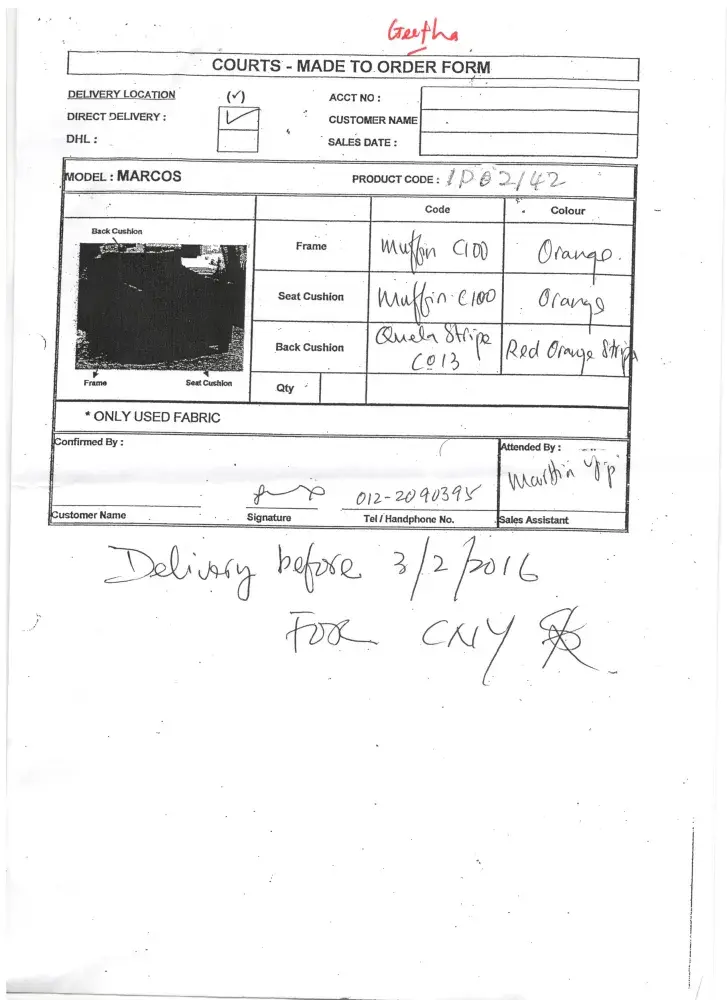 Geetha
COURTS - MADE TO ORDER FORM
DELIVERY LOCATION (✓) ACCT NO :
DIRECT DELIVERY : ✓ CUSTOMER NAME
DHL : SALES DATE :
MODEL : MARCOS PRODUCT CODE : 1P02142
Code Colour
Back Cushion
Frame Muffin C100 Orange.
Seat Cushion Muffin C100 Orange
Back Cushion Quela Stripe C013 Red Orange Strip
Frame Seat Cushion
Qty
* ONLY USED FABRIC
Confirmed By : Attended By :
012-2090395 Martin Yp
Customer Name Signature Tel / Handphone No. Sales Assistant
Delivery before 3/2/2016
FOR CNY